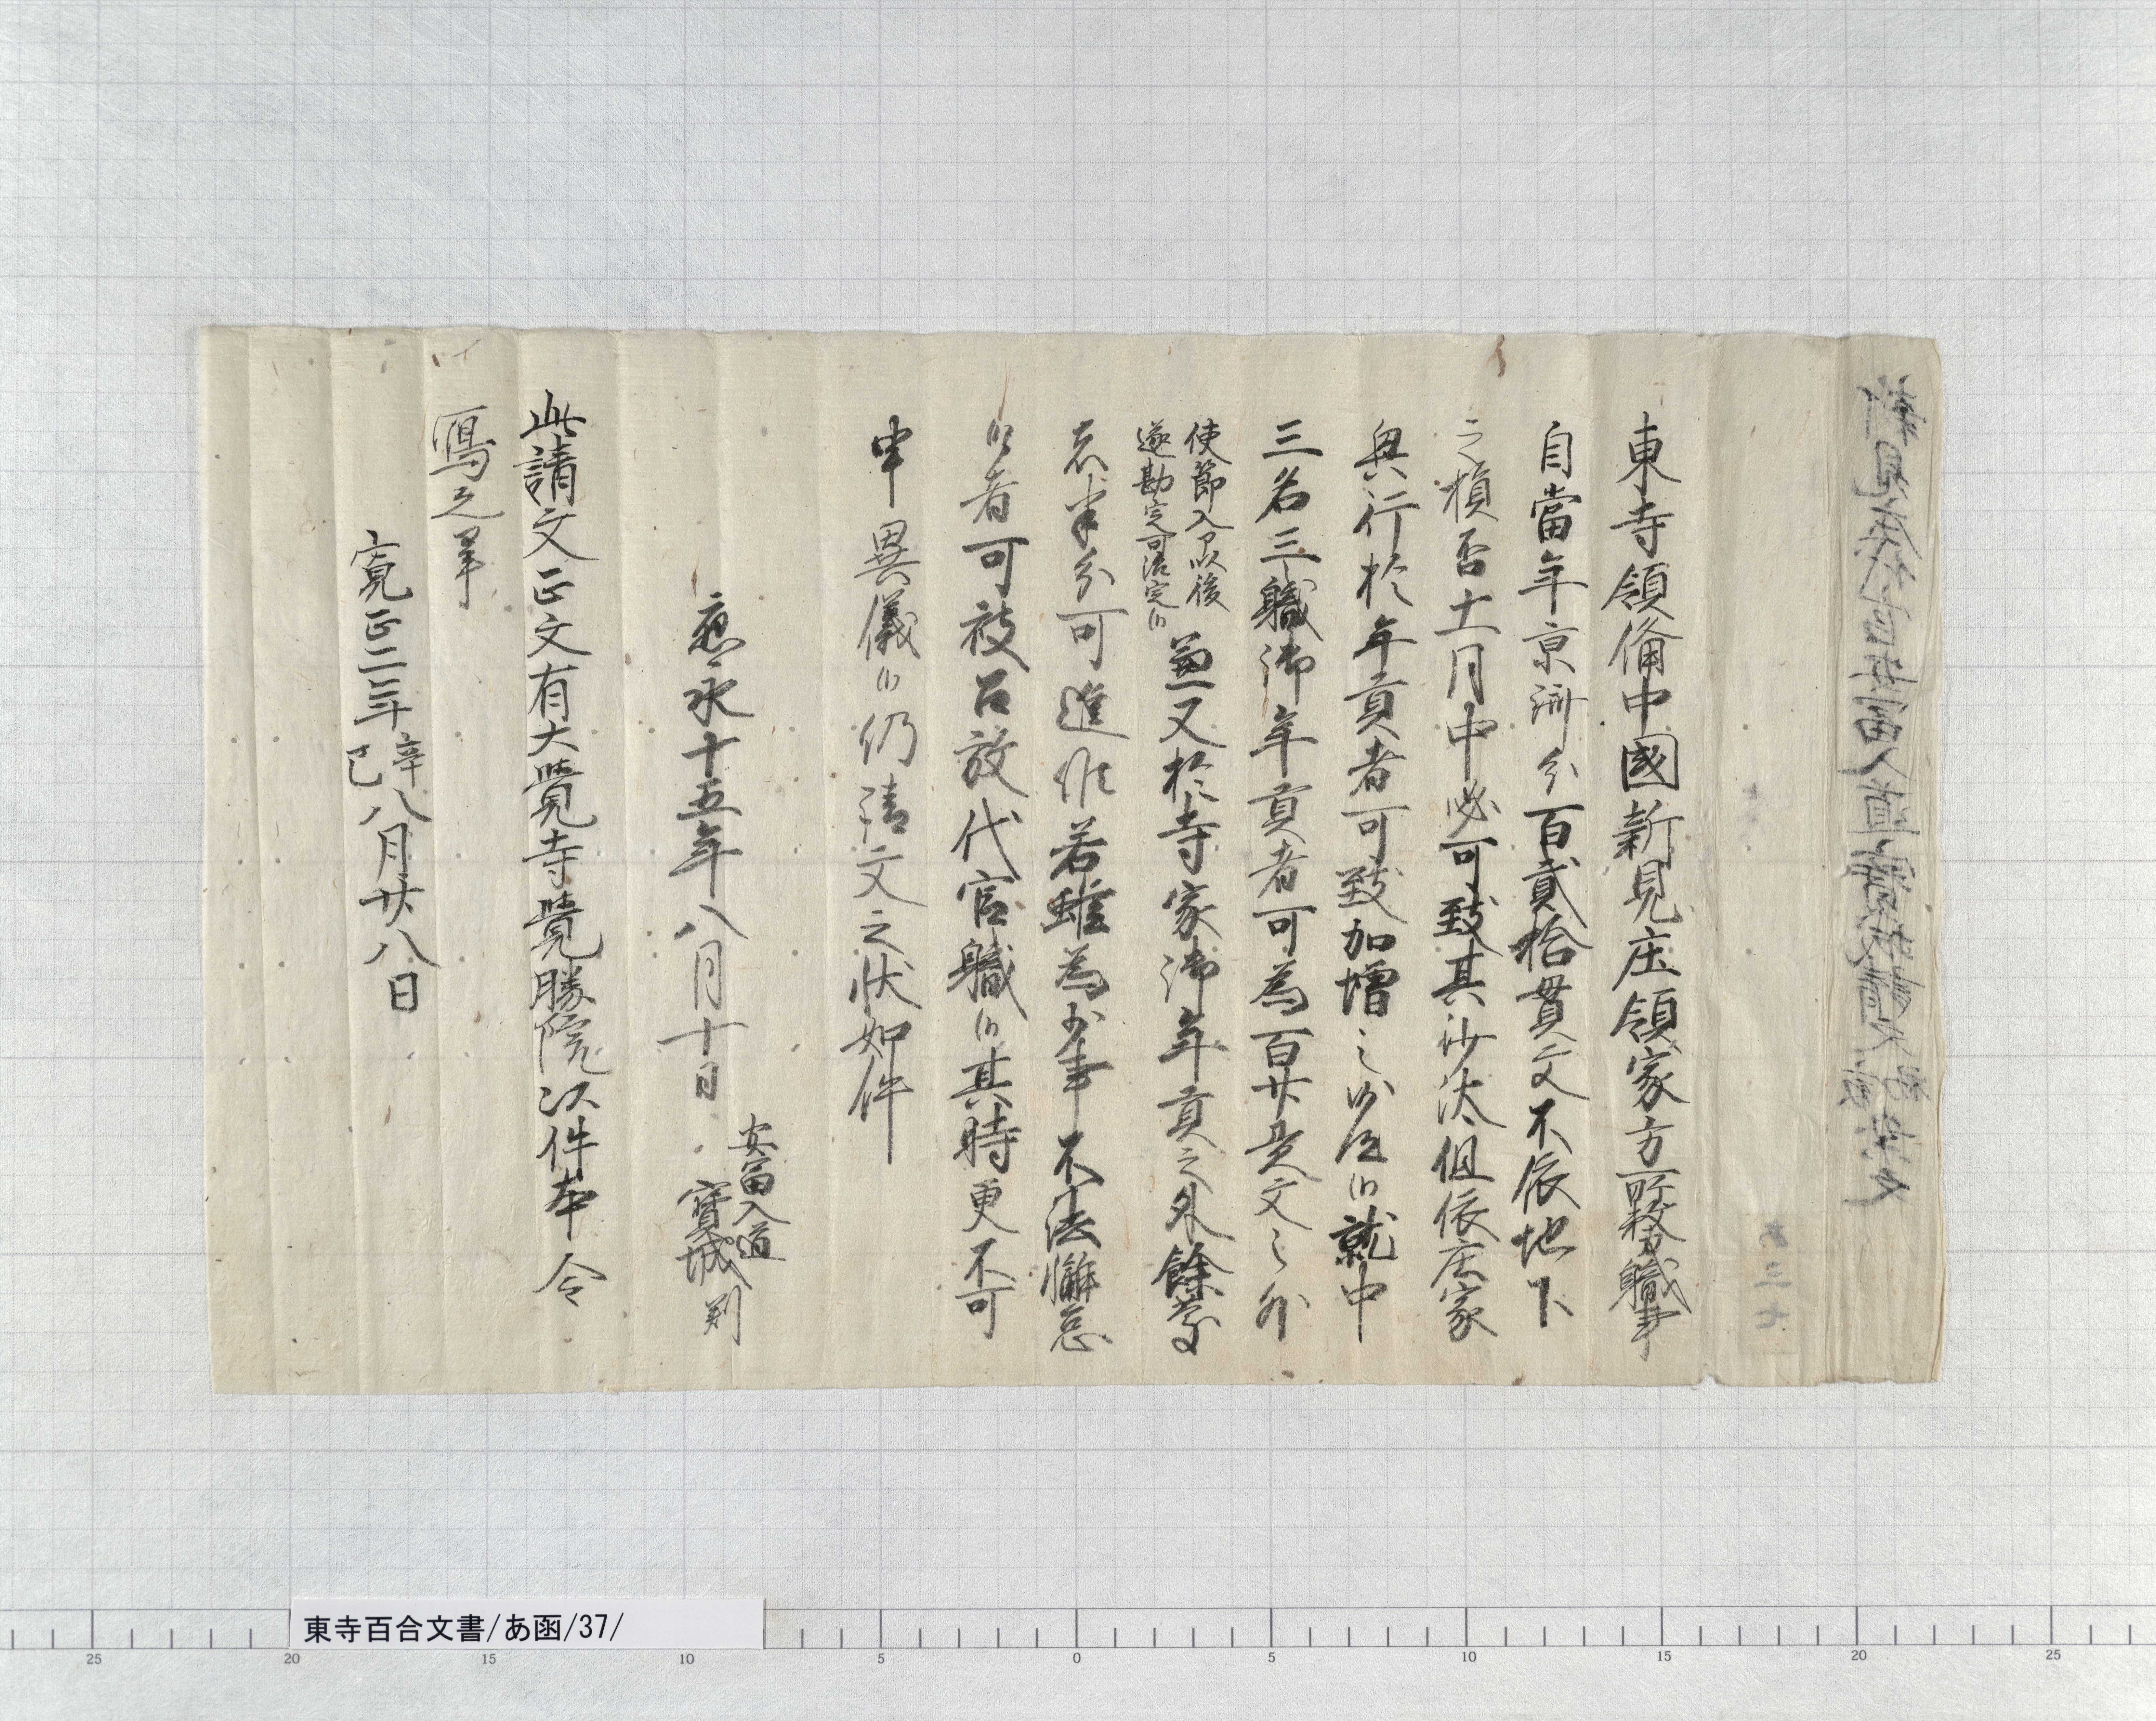 東寺領備中國新見庄領家方所務職事
自當年京済分百貳拾貫文不依地下
之損否十一月中必可致其沙汰但依庄家
興行於年貢者可致加増之沙汰候就中
三名三職御年貢者可為百廿貫文之外
使節入部以後
遂勘定可治定候
兼又於寺家御年貢之外餘剰
者半分可進候若雖為少事不法懈怠
候者可被召放代官職候其時更不可
申異儀候仍請文之状如件
應永十五年八月十日
安冨入道
寳城判
此請文正文有大覺寺覺勝院以件本令
寫之畢
寛正二年辛巳八月廿八日
あ三七
東寺百合文書/あ函/37/
25 20 15 10 5 0 5 10 15 20 25